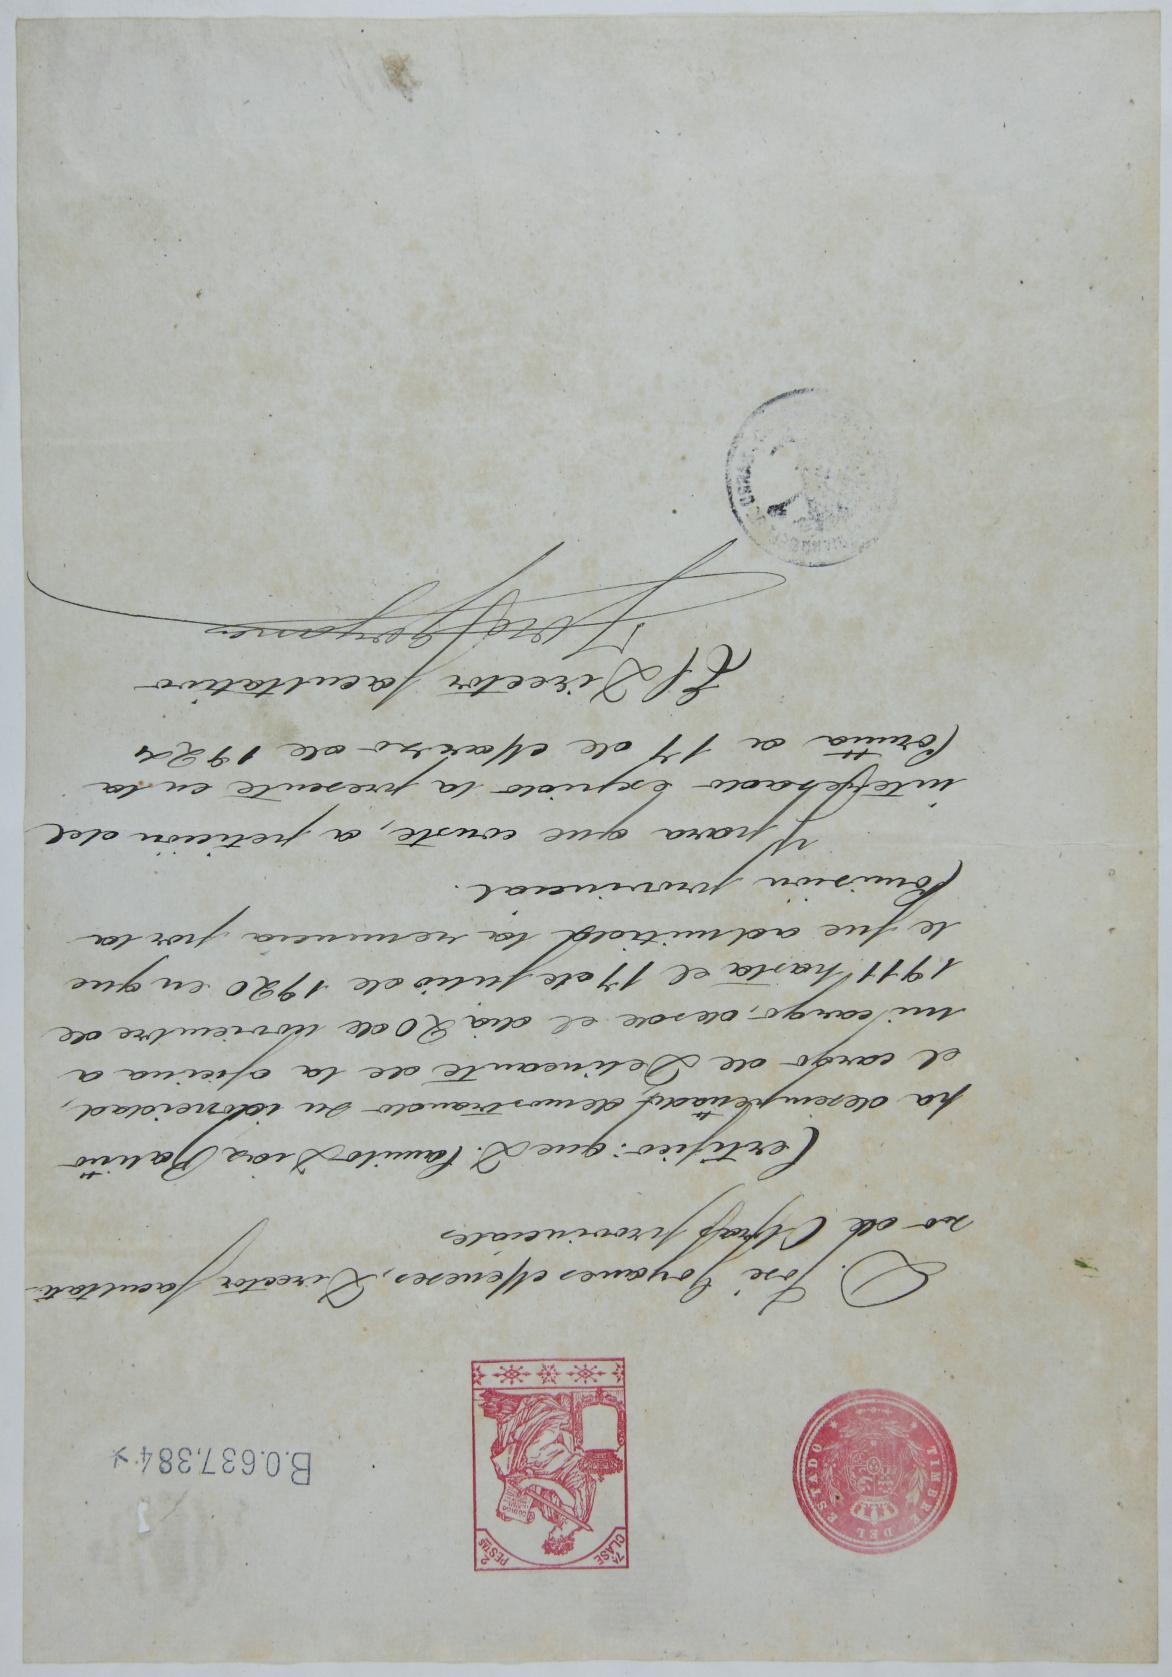 TIMBRE DEL ESTADO
7ª CLASE
2 PESTAS
CODIGO
B.0.637.384*
D. José Goyanes Meneses, Director facultati-
vo de Obras provinciales
Certifico: que D. Camilo Diaz Baliño
ha desempeñado, demostrando su idoneidad,
el cargo de Delineante de la oficina a
mi cargo, desde el dia 20 de noviembre de
1911 hasta el 17 de Julio de 1920 en que
le fue admitida la renuncia por la
Comisión provincial.
Y para que conste, a petición del
interesado expido la presente en la
Coruña a 17 de Marzo de 1924
El Director facultativo
José Goyanes